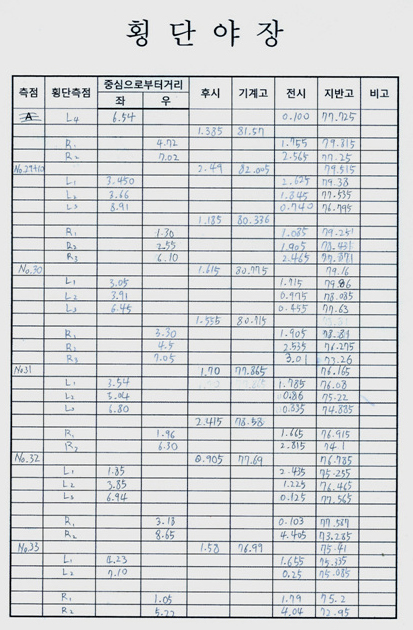 횡단야장
측점 횡단측점 중심으로부터거리 후시 기계고 전시 지반고 비고
좌 우
A L4 6.54 0.100 77.725
1.385 81.57
R1 4.72 1.755 79.815
R2 7.02 2.565 77.25
No.29+10 2.49 82.005 79.515
L1 3.450 2.625 79.38
L2 3.66 1.845 77.535
L3 8.91 0.740 76.795
1.185 80.336
R1 1.30 1.085 79.251
R2 2.55 1.905 78.431
R3 6.10 2.465 77.871
No.30 1.615 80.775 79.16
L1 3.05 1.715 79.06
L2 3.91 0.975 78.085
L3 6.45 0.455 77.63
1.555 80.715
R1 3.30 1.905 78.81
R2 4.5 2.535 76.275
R3 7.05 3.01 73.26
No31 1.70 77.865 76.165
L1 3.54 1.785 76.08
L2 3.04 0.86 75.22
L3 6.80 0.335 74.885
2.415 78.58
R1 1.96 1.665 76.915
R2 6.30 2.815 74.1
No.32 0.905 77.69 76.785
L1 1.85 2.435 75.255
L2 3.85 1.225 76.465
L3 6.94 0.125 77.565
R1 3.18 0.103 77.587
R2 8.65 4.405 73.285
No.33 1.58 76.99 75.41
L1 4.23 1.655 75.335
L2 7.10 0.25 75.085
R1 1.05 1.79 75.2
R2 5.22 4.04 72.95